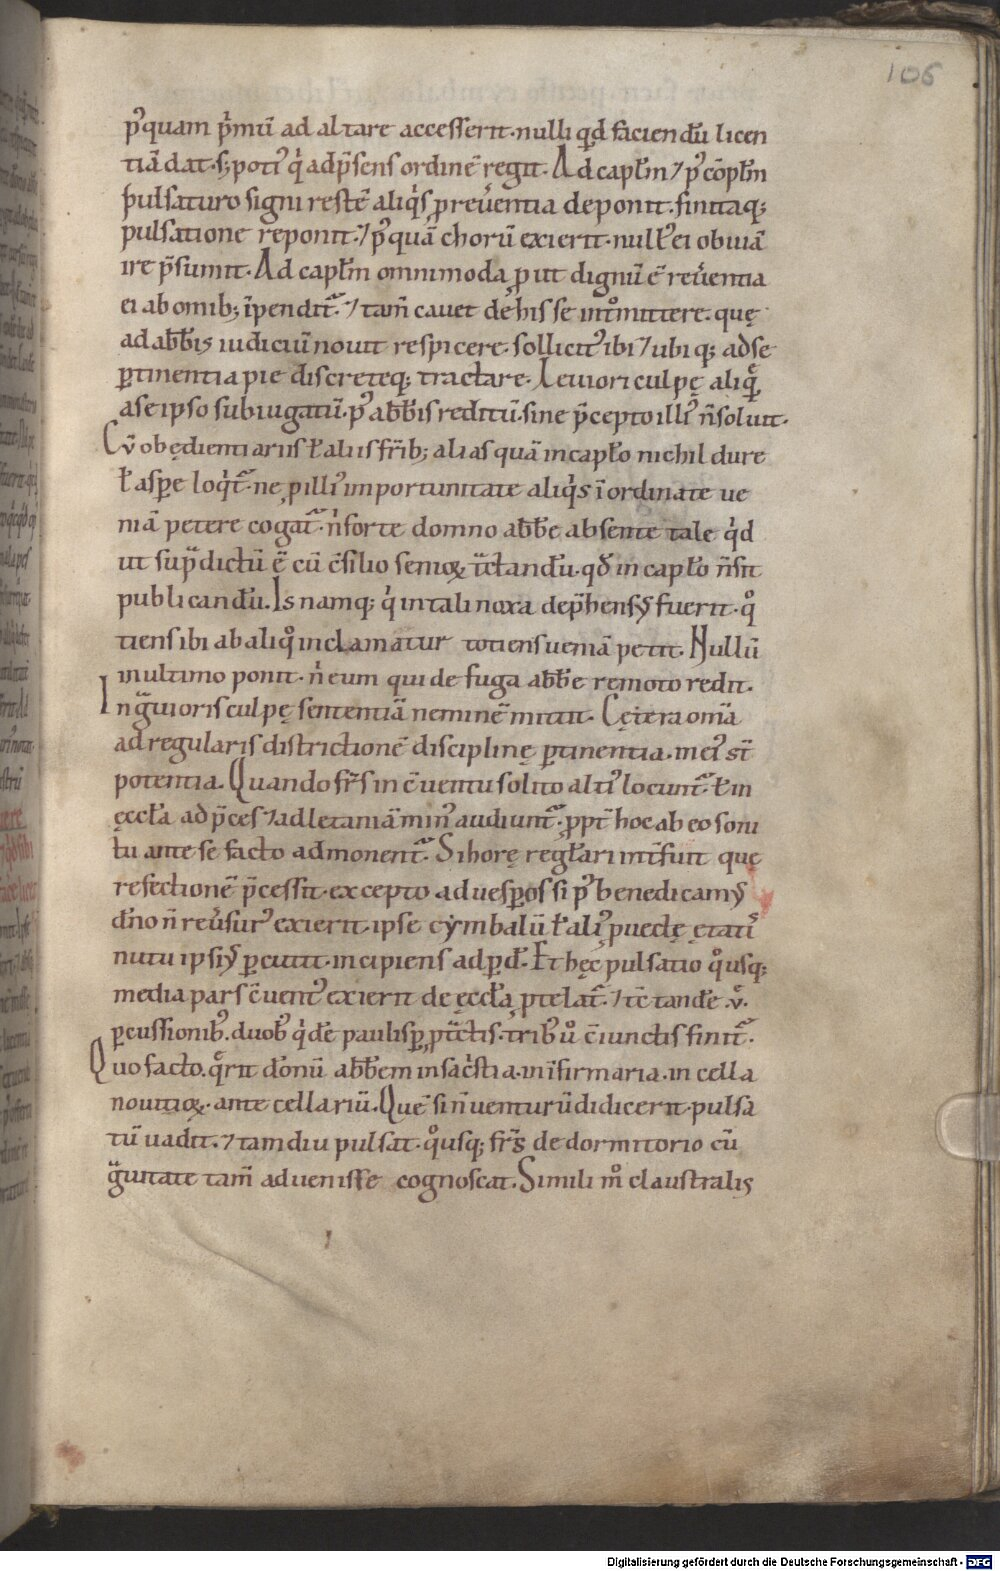 106
p᷒quam p̓mū ad altare accesserit. nulli qd̛ faciendū licen
tiā dat. s; poti᷒ q̓ ad p̄sens ordinē regit. Ad capłm ⁊ p᷒ cōpłm
pulsaturo signi restē aliq̓s p reuerentia deponit. finitaq;
pulsatione reponit. ⁊ p᷒quā chorū exierit. null᷒ ei obuiā
ire p̄sumit. Ad capłm omnimoda put dignū ē reuerentia
ei ab omib; īpendit᷑. ⁊ tam̄ cauet de his se intᵒmittere. quę
ad abb̄is iudiciū nouit respicere. sollicit᷒ ibi ⁊ ubiq; ad se
ꝑtinentia pie discreteq; tractare. Leuiori culpę aliqͤ
a se ipso subiugatū. p᷒ abb̄is reditū. sine p̄cepto illi᷒ n̄ soluit.
Cū obędientiariis ł aliis fr̄ib; alias quā in capło nichil dure
ł aspe loq̓t᷑. ne p illi᷒ importunitate aliq̓s īordinate ue
niā petere cogat᷑. n̓ forte domno abb̄e absente tale q̓d
ut sup̄dictū ē cū c̄silio senioꝝ t̄ctandū. qd̛ in capło n̄ sit
publicandū. Is namq; q̓ in tali noxa dep̄hens᷒ fuerit. qᵒ
tiens ibi ab aliqᵒ inclamatur totiens ueniā petit. Nullū
in ultimo ponit. n̓ eum qui de fuga abb̄e remoto redit.
In ḡuioris culpę sententiā neminē mittit. Cętera om̄a
ad regularis districtionē disciplinę ꝑtinentia. in ei᷒ st̄
potentia. Quando fr̄s in c̄uentu solito alti᷒ locunt᷑. ł in
ęccła ad p̄ces ⁊ ad letaniā min᷒ audiunt᷑. ppt̄ hoc ab eo soni
tu ante se facto admonent᷑. Si horę regłari int̄fuit que
refectionē p̄cessit. excepto ad uesꝑos si p᷒ benedicam᷒
dn̄o n̄ reu̓sur᷒ exierit. ipse cymbalū ł ali᷒ puectę ętati᷒
nutu ipsi᷒ ꝑcutit. incipiens ad ꝑd̄. Et hęc pulsatio qᵒusq;
media pars c̄uent᷒ exierit de ęccła ptelat᷑. ⁊ tc̄ tandē v͛.
ꝑcussionib᷒. duob᷒ q̓dē paulisꝑ pt̄ctis. trib᷒ uᵒ c̄iunctis finit᷑.
Quo facto. qͤrit dōnū abb̄em in sac̓stia. in īfirmaria. in cella
nouitioꝝ. ante cellariū. Quē si n̄ uenturū didicerit. pulsa
tū uadit. ⁊ tam diu pulsat. qᵒusq; fr̄s de dormitorio cū
ḡuitate tam̄ aduenisse cognoscat. Simili mᵒ claustralis
Digitalisierung gefördert durch die Deutsche Forschungsgemeinschaft - DFG